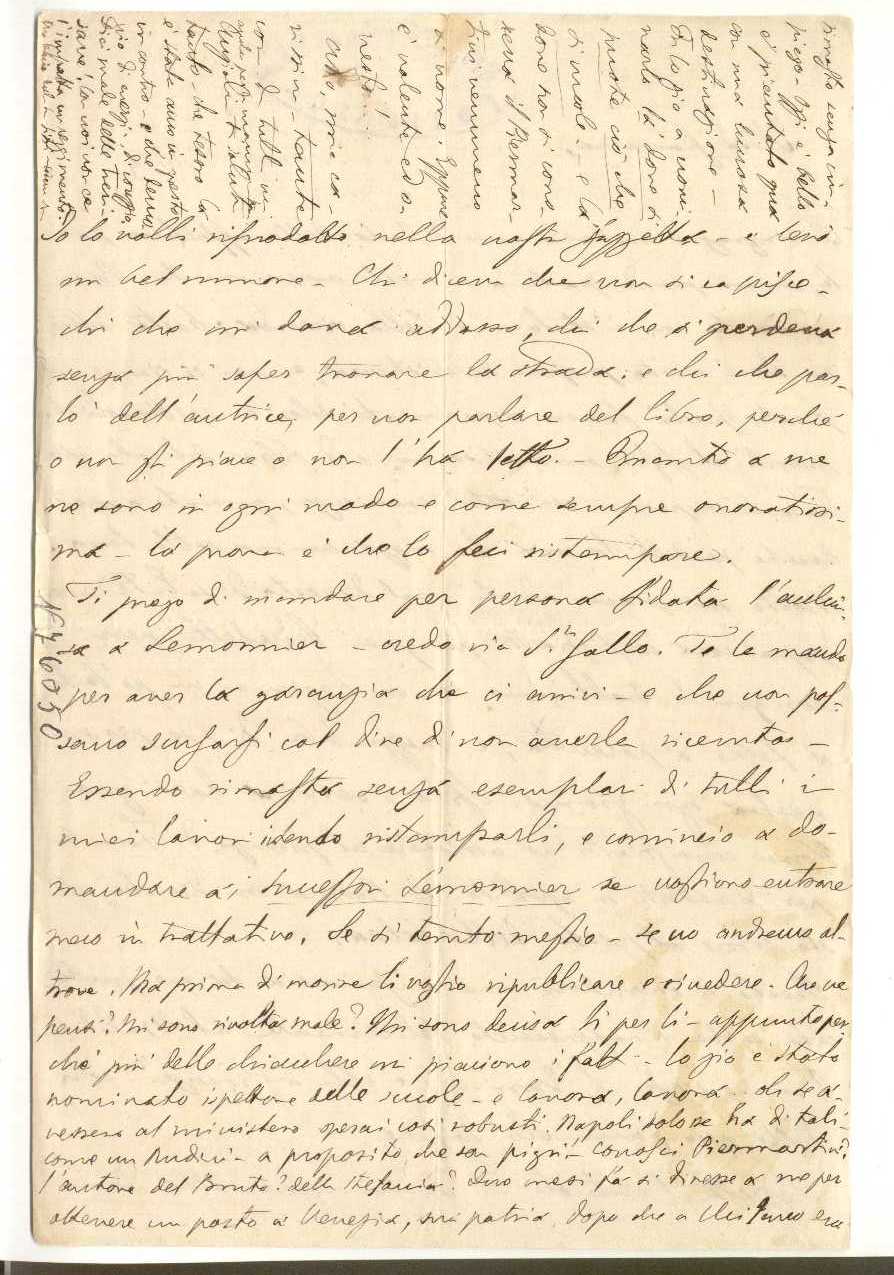 Io lo volli riprodotto nella vostra gazzetta - e levò
un bel rumore - Chi diceva che non si capisce -
chi che mi dava addosso, chi che si perdeva
senza più saper trovare la strada. e chi che par-
lò dell'autrice, per non parlare del libro, perché
o non gli piace o non l'ha letto. - Quanto a me
ne sono in ogni modo e come sempre onoratissi-
ma - la prova è che lo feci ristampare.
Ti prego di mandare per persona fidata l'acclu-
sa a Lemonnier - credo via S. Gallo. Te la mando
per aver la garanzia che ci arrivi - e che non pos-
sano scusarsi col dire di non averla ricevuta -
Essendo rimasta senza esemplari di tutti i
miei lavori intendo ristamparli, e comincio a do-
mandare ai Successori Lemonnier se vogliono entrare
meco in trattative. Se si tanto meglio - se no andremo al-
trove. Ma prima di morire li voglio ripubblicare e rivedere. Che ne
pensi? Mi sono rivolta male? Mi sono decisa lì per lì - appunto per-
ché più delle chiacchere mi piacciono i fatti - Lo zio è stato
nominato ispettore delle scuole - e lavora, lavora oh se a-
vessero al ministero operai così robusti. Napoli solo se ha di tali -
come un Rudinì - a proposito che son pigri - conosci Piermartini?
l'autore del Bruto? della Stefania? Due mesi fa si diresse a me per
ottenere un posto a Venezia, sua patria, dopo che a era
N 76050
rimasto senza im-
piego - Oggi è bello
e piantato qua
con una buona
destinazione -
Lo zio a nomi-
narlo là dove si
puote ciò che
si vuole - e là
dove non si cono-
sceva il Piermar-
tini nemmeno
di nome. Eppure
è valente ed o-
nesto!
Addio, mia ca-
rissima - tante
con di tutti
Angiola ti saluta
tanto - che tesoro la
è stata anco in questo
incontro - e che
di energia, di coraggio
Dici male delle Vene-
ziane!